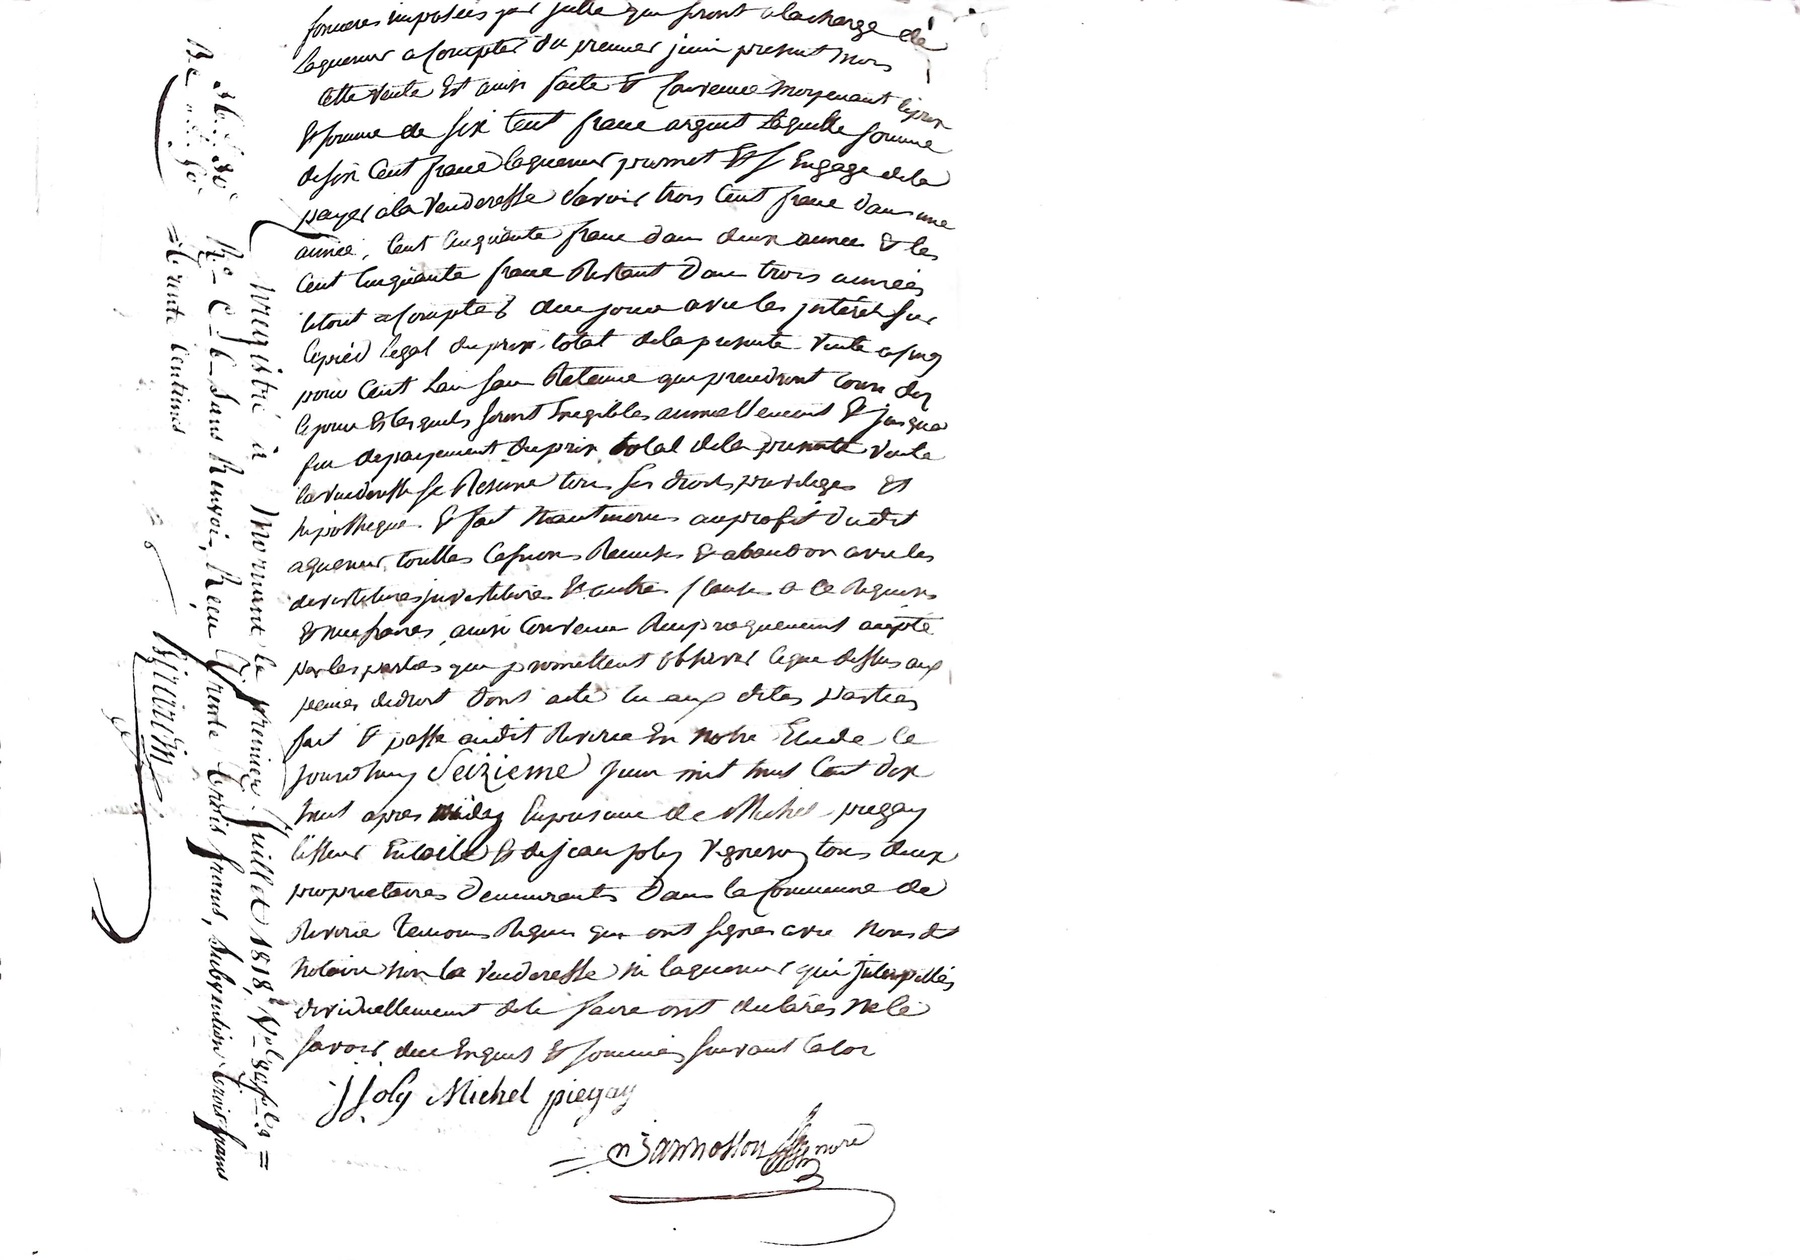 foncieres imposées sur jcelle qui seront a lacharge de
laquereur a Compter du premier juin present mois
Cette vente Est ainsi faite Et Convenue moyenant leprix
Et somme de six Cent franc argent laquelle somme
desix Cent franc laquereur promet Et s Engage dela
payer ala Venderesse savoir trois Cent franc dans une
année, Cent Cinquante franc dans deux années Et les
Cent Cinquante franc Restant dans trois années
letout a Compter dece jour avec les jntérét sur
lepied legal du prix total dela presente vente acinq
pour Cent Lan san Retenue qui prendront cour des
cejour Et lesquels seront Exegibles annuellement Et jusqua
fin depayement duprix total dela presente vente
lavenderesse se Reserve tous ses droits privileges et
hipotheque. Et fait Neantmoins auprofit dudit
aquereur, touttes Cessions Remises Et abandon avec les
devestitures jnvestitures Et autres Clauses a Ce Requises
Et necessaires, ainsi Convenu Reciproquement accepté
par les parties qui promettent observer ceque dessus aux
peines dedroit dont acte lu aux dites Parties
fait Et passé audit Riverie En notre Etude le
jourdhuy Seizieme juin mil huit Cent dix
huit apres midy Enpresence de Michel piegay
tisseur Entoile Et dejean joly Vigneron tous deux
proprietaires demeurants Dans la Commune de
Riverie temoins Requis qui ont signés avec Nous dit
Notaire non la Venderesse ni laquereur qui jnterpellés
dividuellement dele faire ont declarés ne le
savoir, dece Enquis Et sommés suivant la loi
jjoly Michel piegay
Jannosson nore
Enregistré à Mornant le premier Juillet 1818,
Sans Renvoi, Reçu Trente trois francs, Subvention trois francs
trente Centimes